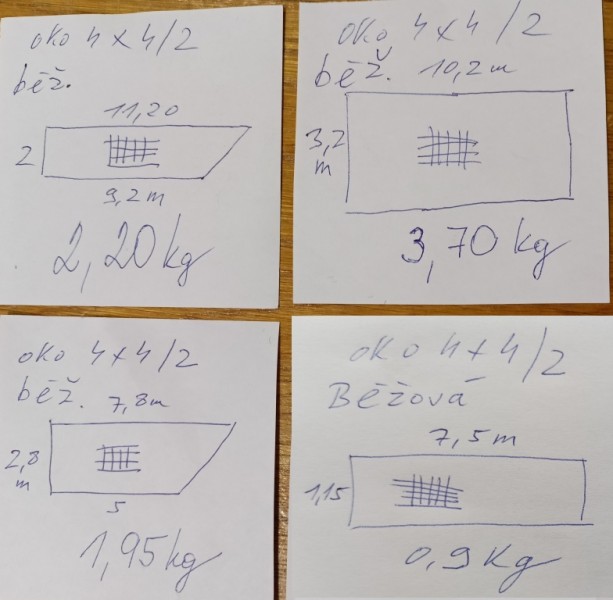 oko 4 x 4/2
béž.
11,20
2
9,2 m
2,20 kg
oko 4 x 4/2
béž. 10,2 m
3,2
m
3,70 kg
oko 4 x 4/2
béž. 7,8m
2,8
m
5
1,95 kg
oko 4 x 4/2
Béžová
7,5 m
1,15
0,9 Kg